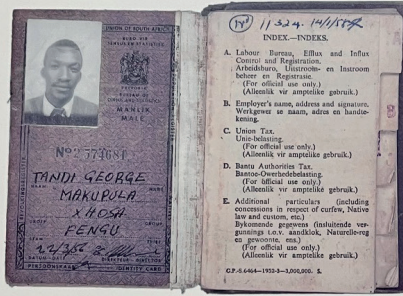 UNION OF SOUTH AFRICA
BURO VIR
SENSUS EN STATISTIEK
BUREAU OF
CENSUS AND STATISTICS
MANLIK
MALE
No 2 573681
TANDI GEORGE
MAKUPULA
XHOSA
FENGU
PERSOONSKAART IDENTITY CARD
INDEX.—INDEKS.
A. Labour Bureau, Efflux and Influx
Control and Registration.
Arbeidsburo, Uitstroom- en Instroom
beheer en Registrasie.
(For official use only.)
(Alleenlik vir amptelike gebruik.)
B. Employer's name, address and signature.
Werkgewer se naam, adres en handte-
kening.
C. Union Tax.
Unie-belasting.
(For official use only.)
(Alleenlik vir amptelike gebruik.)
D. Bantu Authorities Tax.
Bantoe-Owerhedebelasting.
(For official use only.)
(Alleenlik vir amptelike gebruik.)
E. Additional particulars (including
concessions in respect of curfew, Native
law and custom, etc.)
Bykomende gegewens (insluitende ver-
gunnings t.o.v. aandklok, Naturelle-reg
en gewoonte, ens.)
(For official use only.)
(Alleenlik vir amptelike gebruik.)
G.P.-S.6464—1952-3—3,000,000. S.